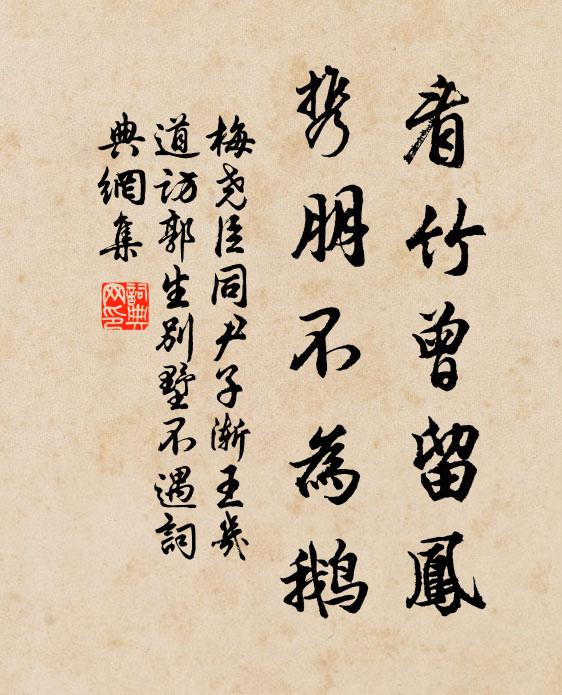 看竹曾留鳳
携朋不為鵝
梅堯臣同尹子漸王幾
道訪郭生別墅不遇詞
典網集
詞典
网印